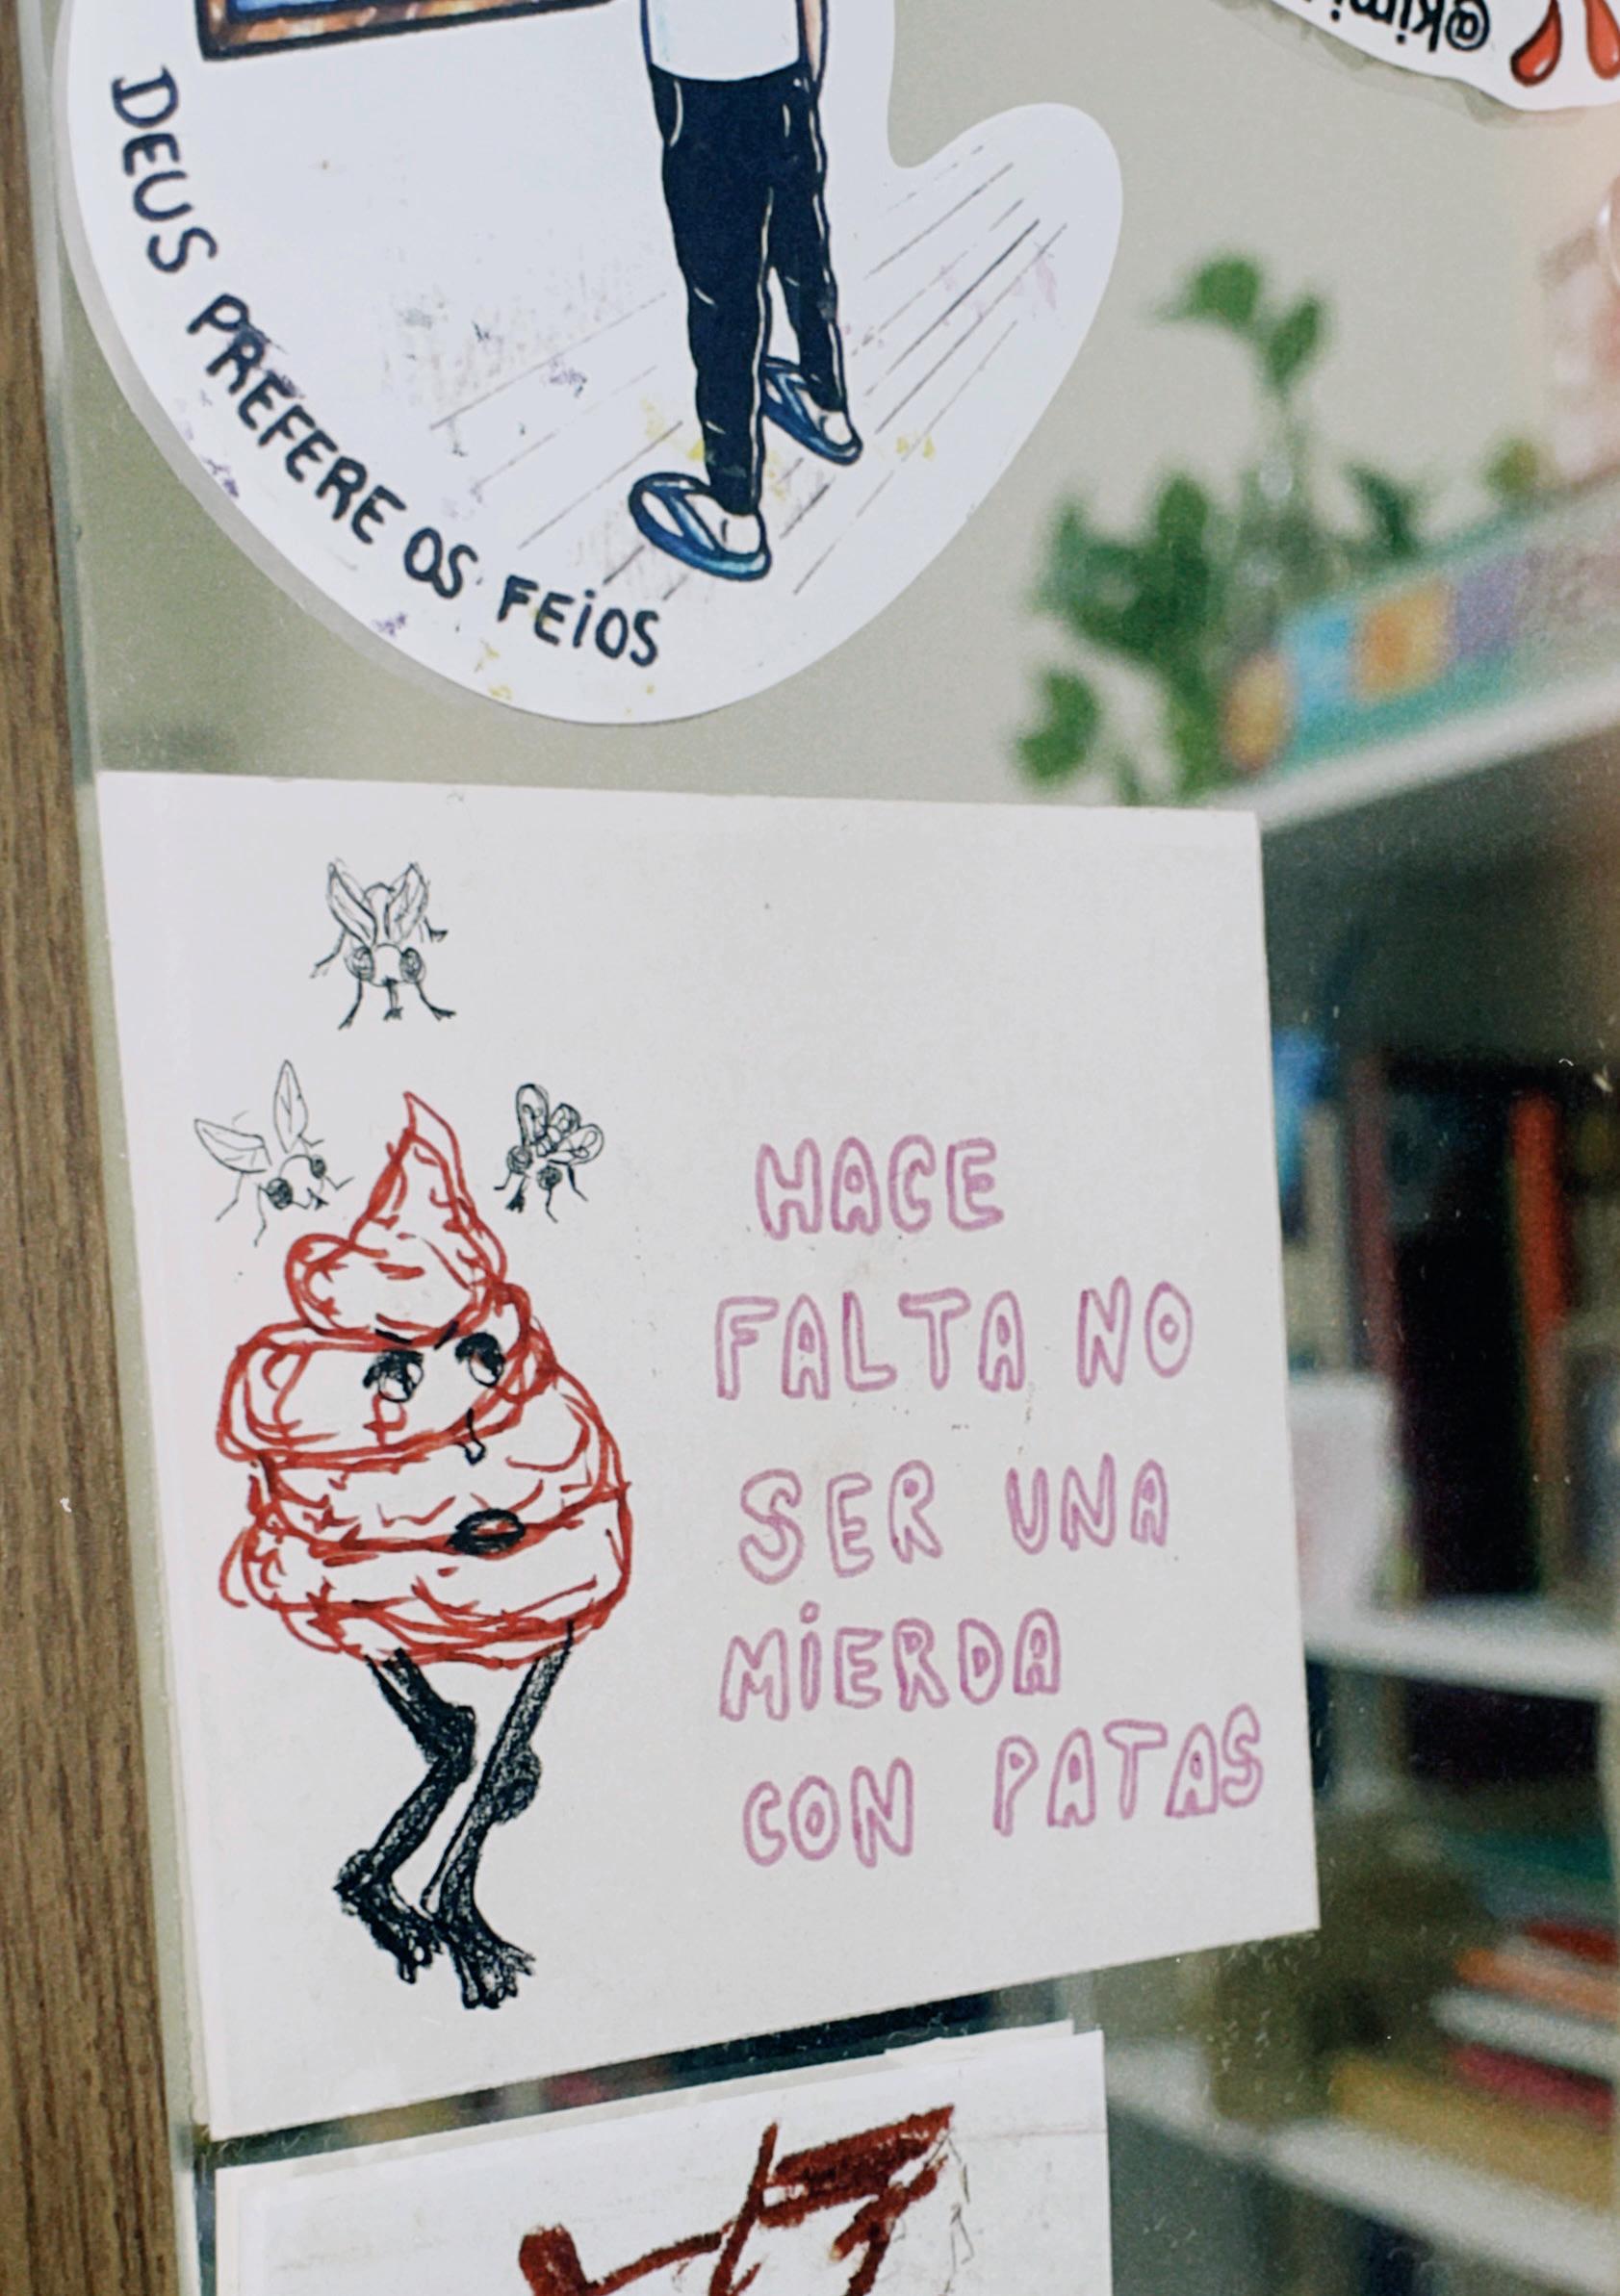 DEUS PREFERE OS FEiOS
HACE
FALTA NO
SER UNA
MiERDA
CON PATAS